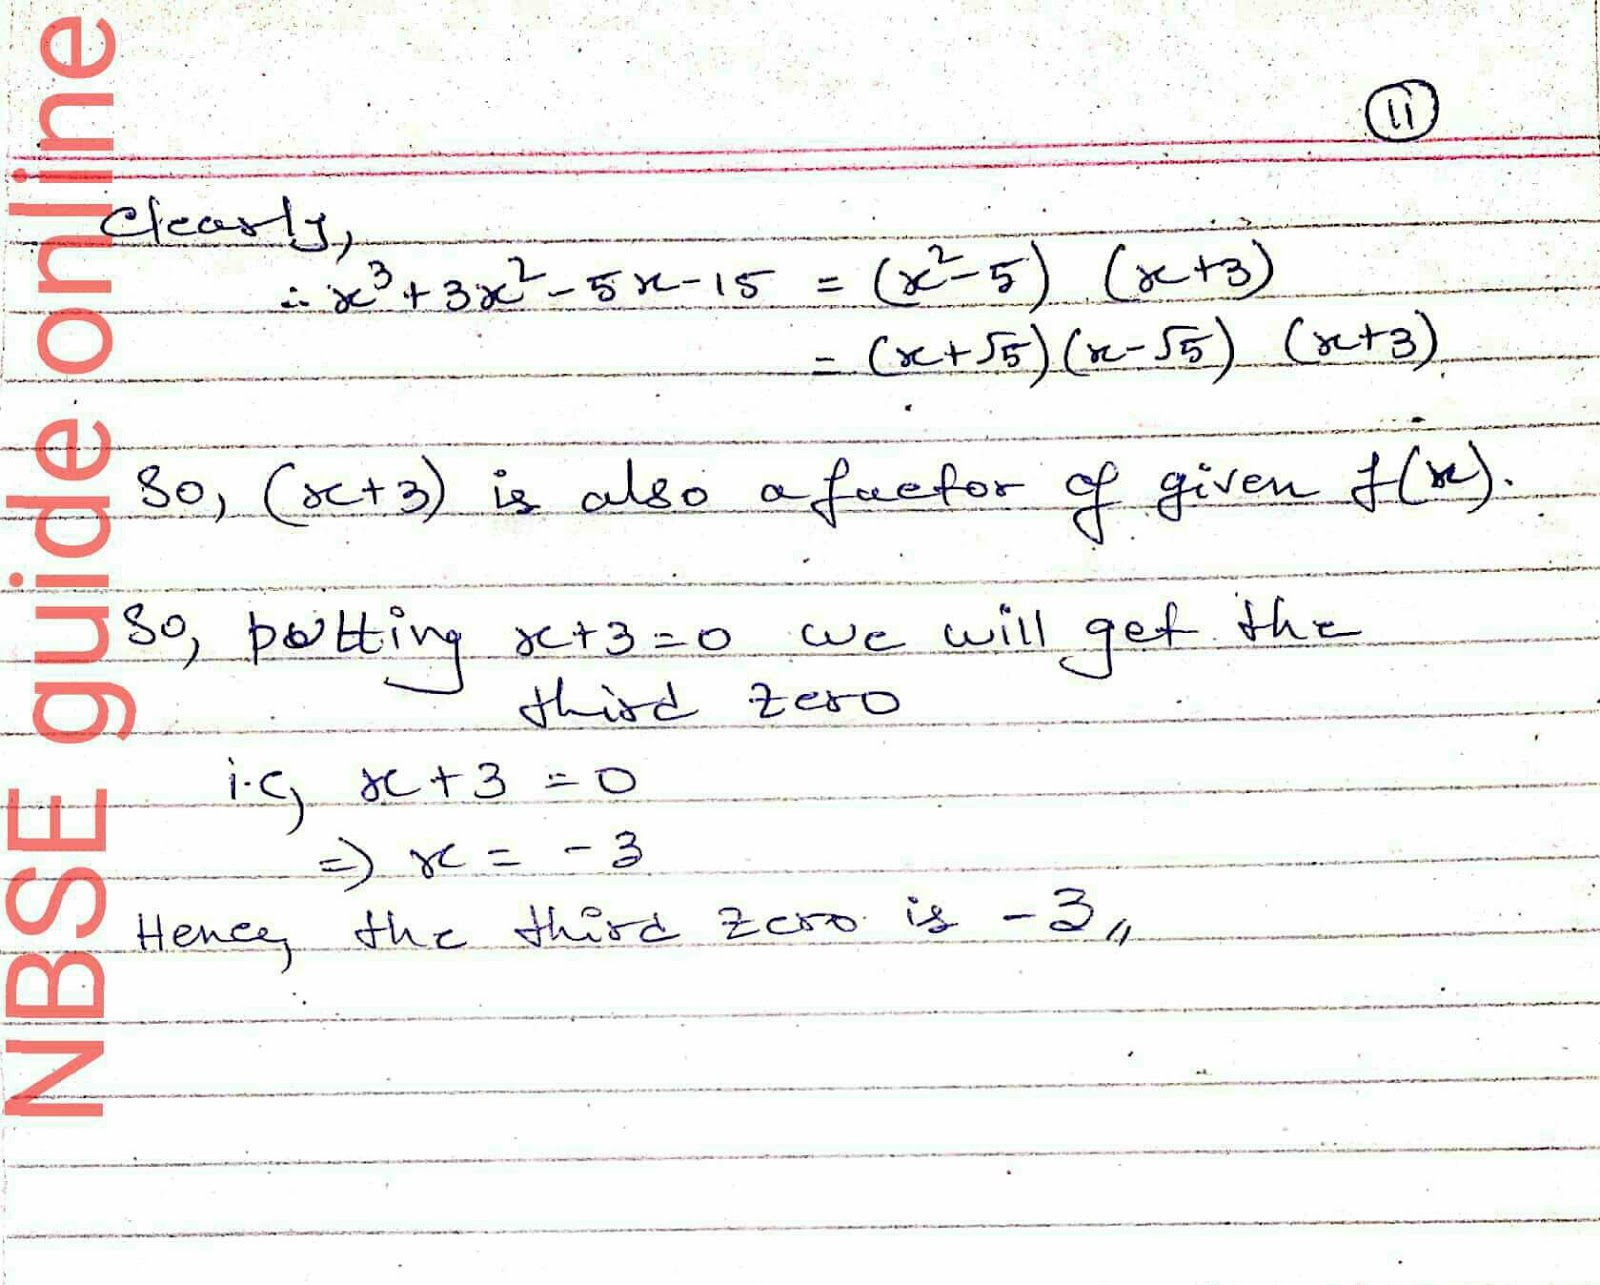 11
Clearly,
∴ x³ + 3x² - 5x - 15 = (x² - 5) (x+3)
= (x+√5) (x-√5) (x+3)
So, (x+3) is also a factor of given f(x).
So, putting x+3=0 we will get the
third zero
i.e, x+3 = 0
=) x = -3
Hence, the third zero is -3,,
NBSE guide online